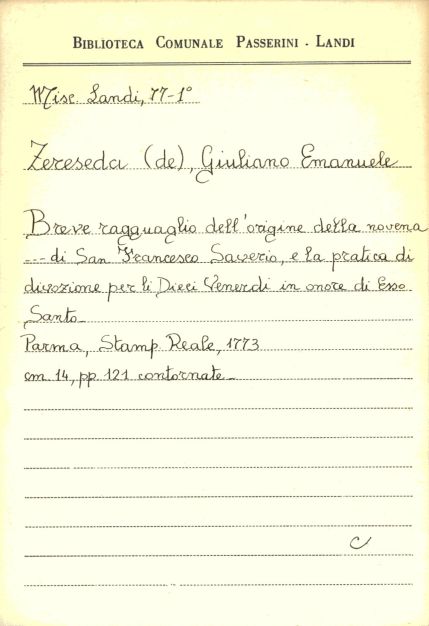 BIBLIOTECA COMUNALE PASSERINI - LANDI
Misc. Landi, 77-1°
Zereseda (de), Giuliano Emanuele
Breve ragguaglio dell'origine della novena
--- di San Francesco Saverio, e la pratica di
divozione per li Dieci Venerdi in onore di Esso
Santo_
Parma, Stamp. Reale, 1773
cm. 14, pp. 121 contornate_
C